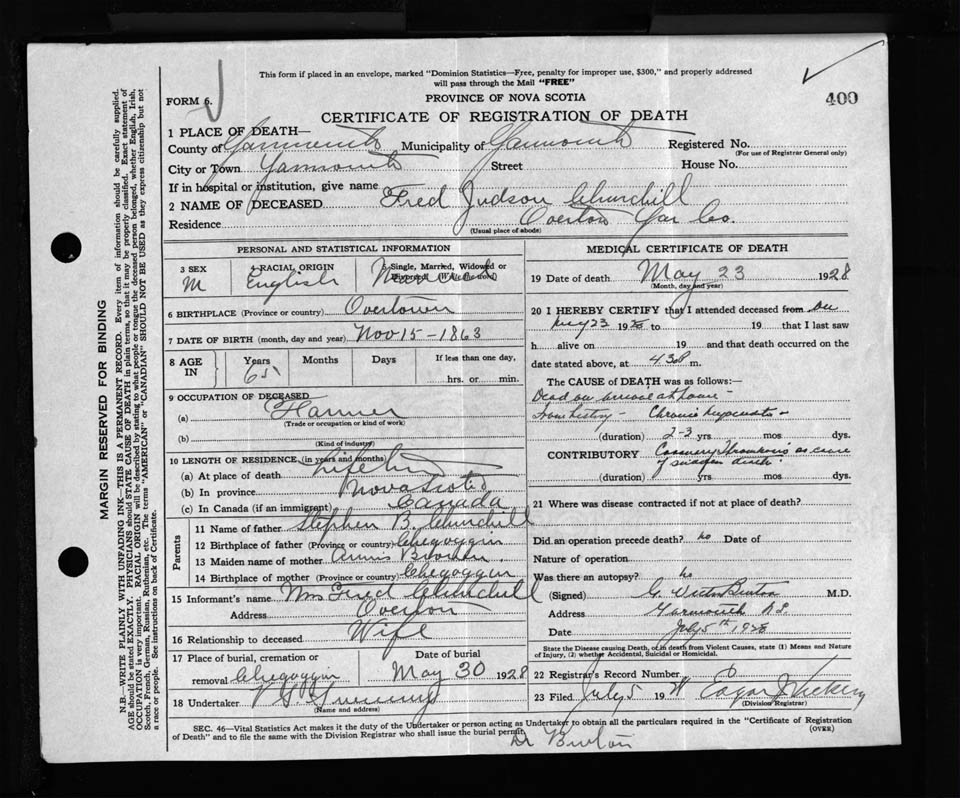 This form if placed in an envelope, marked "Dominion Statistics—Free, penalty for improper use, $300," and properly addressed
will pass through the Mail "FREE"
400
FORM 6.
PROVINCE OF NOVA SCOTIA
CERTIFICATE OF REGISTRATION OF DEATH
1 PLACE OF DEATH—
County of Yarmouth Municipality of Yarmouth Registered No.
(For use of Registrar General only)
City or Town Yarmouth Street House No.
If in hospital or institution, give name
2 NAME OF DECEASED Fred Judson Churchill
Residence Overton Yar Co.
(Usual place of abode)
PERSONAL AND STATISTICAL INFORMATION
3 SEX M
4 RACIAL ORIGIN English
Single, Married, Widowed or
Married
6 BIRTHPLACE (Province or country) Overtown
7 DATE OF BIRTH (month, day and year) Nov 15-1863
8 AGE IN
Years Months Days If less than one day,
65
hrs. or min.
9 OCCUPATION OF DECEASED
(a) Farmer
(Trade or occupation or kind of work)
(b)
(Kind of industry)
10 LENGTH OF RESIDENCE (in years and months)
(a) At place of death Life time
(b) In province Nova Scotia
(c) In Canada (if an immigrant) Canada
Parents
11 Name of father Stephen B. Churchill
12 Birthplace of father (Province or country) Chegoggin
13 Maiden name of mother
14 Birthplace of mother (Province or country) Chegoggin
15 Informant's name Mrs Fred Churchill
Address Overton
16 Relationship to deceased Wife
17 Place of burial, cremation or Date of burial
removal Chegoggin May 30 1928
18 Undertaker
(Name and address)
MEDICAL CERTIFICATE OF DEATH
19 Date of death May 23 1928
(Month, day and year)
20 I HEREBY CERTIFY that I attended deceased from
23 1928 to 19 that I last saw
h alive on 19 and that death occurred on the
date stated above, at 4.30 P m.
The CAUSE of DEATH was as follows:—
Dead on arrival at home -
from history - Chronic
(duration) 2-3 yrs mos dys.
CONTRIBUTORY Coronary Thrombosis as cause
of sudden death
(duration) yrs mos dys.
21 Where was disease contracted if not at place of death?
Did an operation precede death? no Date of
Nature of operation
Was there an autopsy? no
(Signed) G. Victor Burton M.D.
Address Yarmouth N.S.
Date July 5th 1928
State the Disease causing Death, or in death from Violent Causes, state (1) Means and
Nature of Injury, (2) whether Accidental, Suicidal or Homicidal.
22 Registrar's Record Number
23 Filed July 5 19 Edgar J Vickery
(Division Registrar)
SEC. 46—Vital Statistics Act makes it the duty of the Undertaker or person acting as Undertaker to obtain all the particulars required in the "Certificate of Registration
of Death" and to file the same with the Division Registrar who shall issue the burial permit.
(OVER)
Dr Burton
MARGIN RESERVED FOR BINDING
N.B.—WRITE PLAINLY WITH UNFADING INK—THIS IS A PERMANENT RECORD. Every item of information should be carefully supplied.
AGE should be stated EXACTLY. PHYSICIANS should STATE CAUSE OF DEATH in plain terms, so that it may be properly classified. Exact statement of
OCCUPATION is very important. RACIAL ORIGIN will be described by stating to what people or tongue the deceased person belonged, whether English, Irish,
Scotch, French, German, Russian, Ruthenian, etc. The terms "AMERICAN" or "CANADIAN" SHOULD NOT BE USED as they express citizenship but not
a race or people. See instructions on back of Certificate.